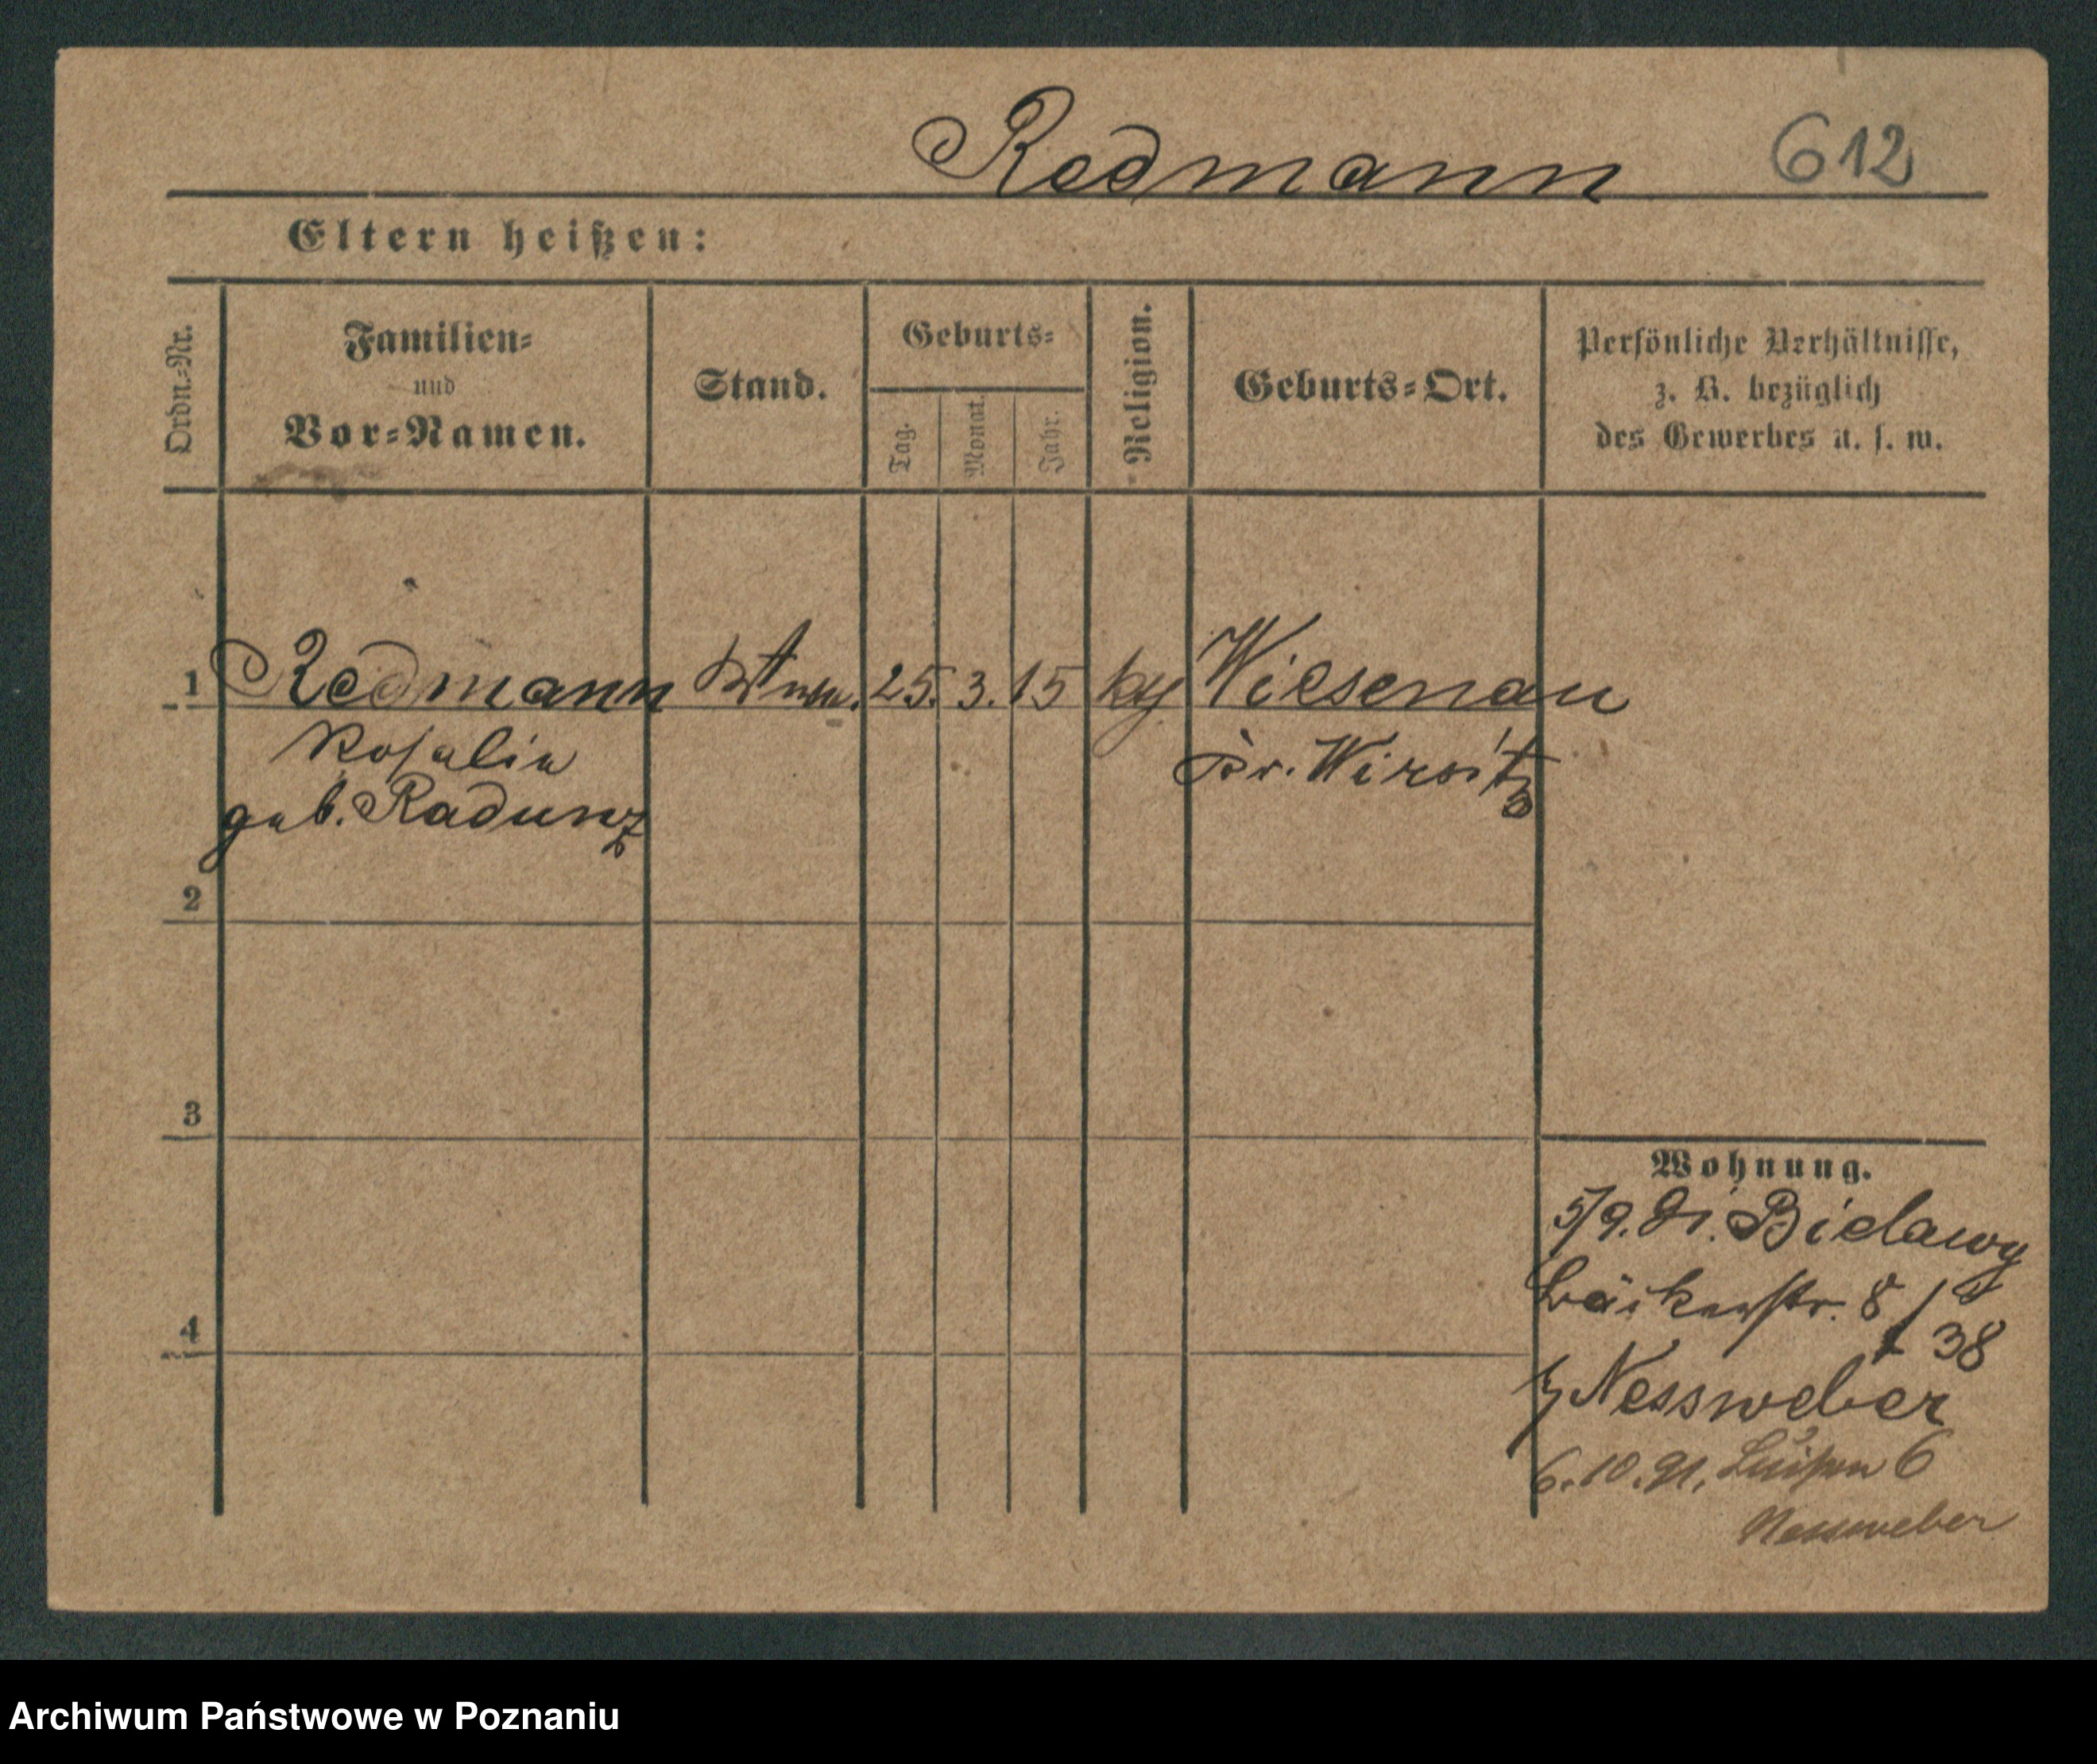 Redmann 612
Eltern heißen:
Ordn.-Nr.
Familien-
und
Vor-Namen.
Stand.
Geburts-
Tag.
Monat.
Jahr.
Religion.
Geburts-Ort.
Persönliche Verhältnisse,
z. B. bezüglich
des Gewerbes u. s. w.
1 Redmann 25. 3. 15 Wiesenau
Rosalie Kr. Wirsitz
geb. Radunz
2
3
4
Wohnung.
5/9. 91. Bielawy
Bäckerstr. 8
38
Nessweber
6. 10. 91, Luisen 6
Nessweber
Archiwum Państwowe w Poznaniu